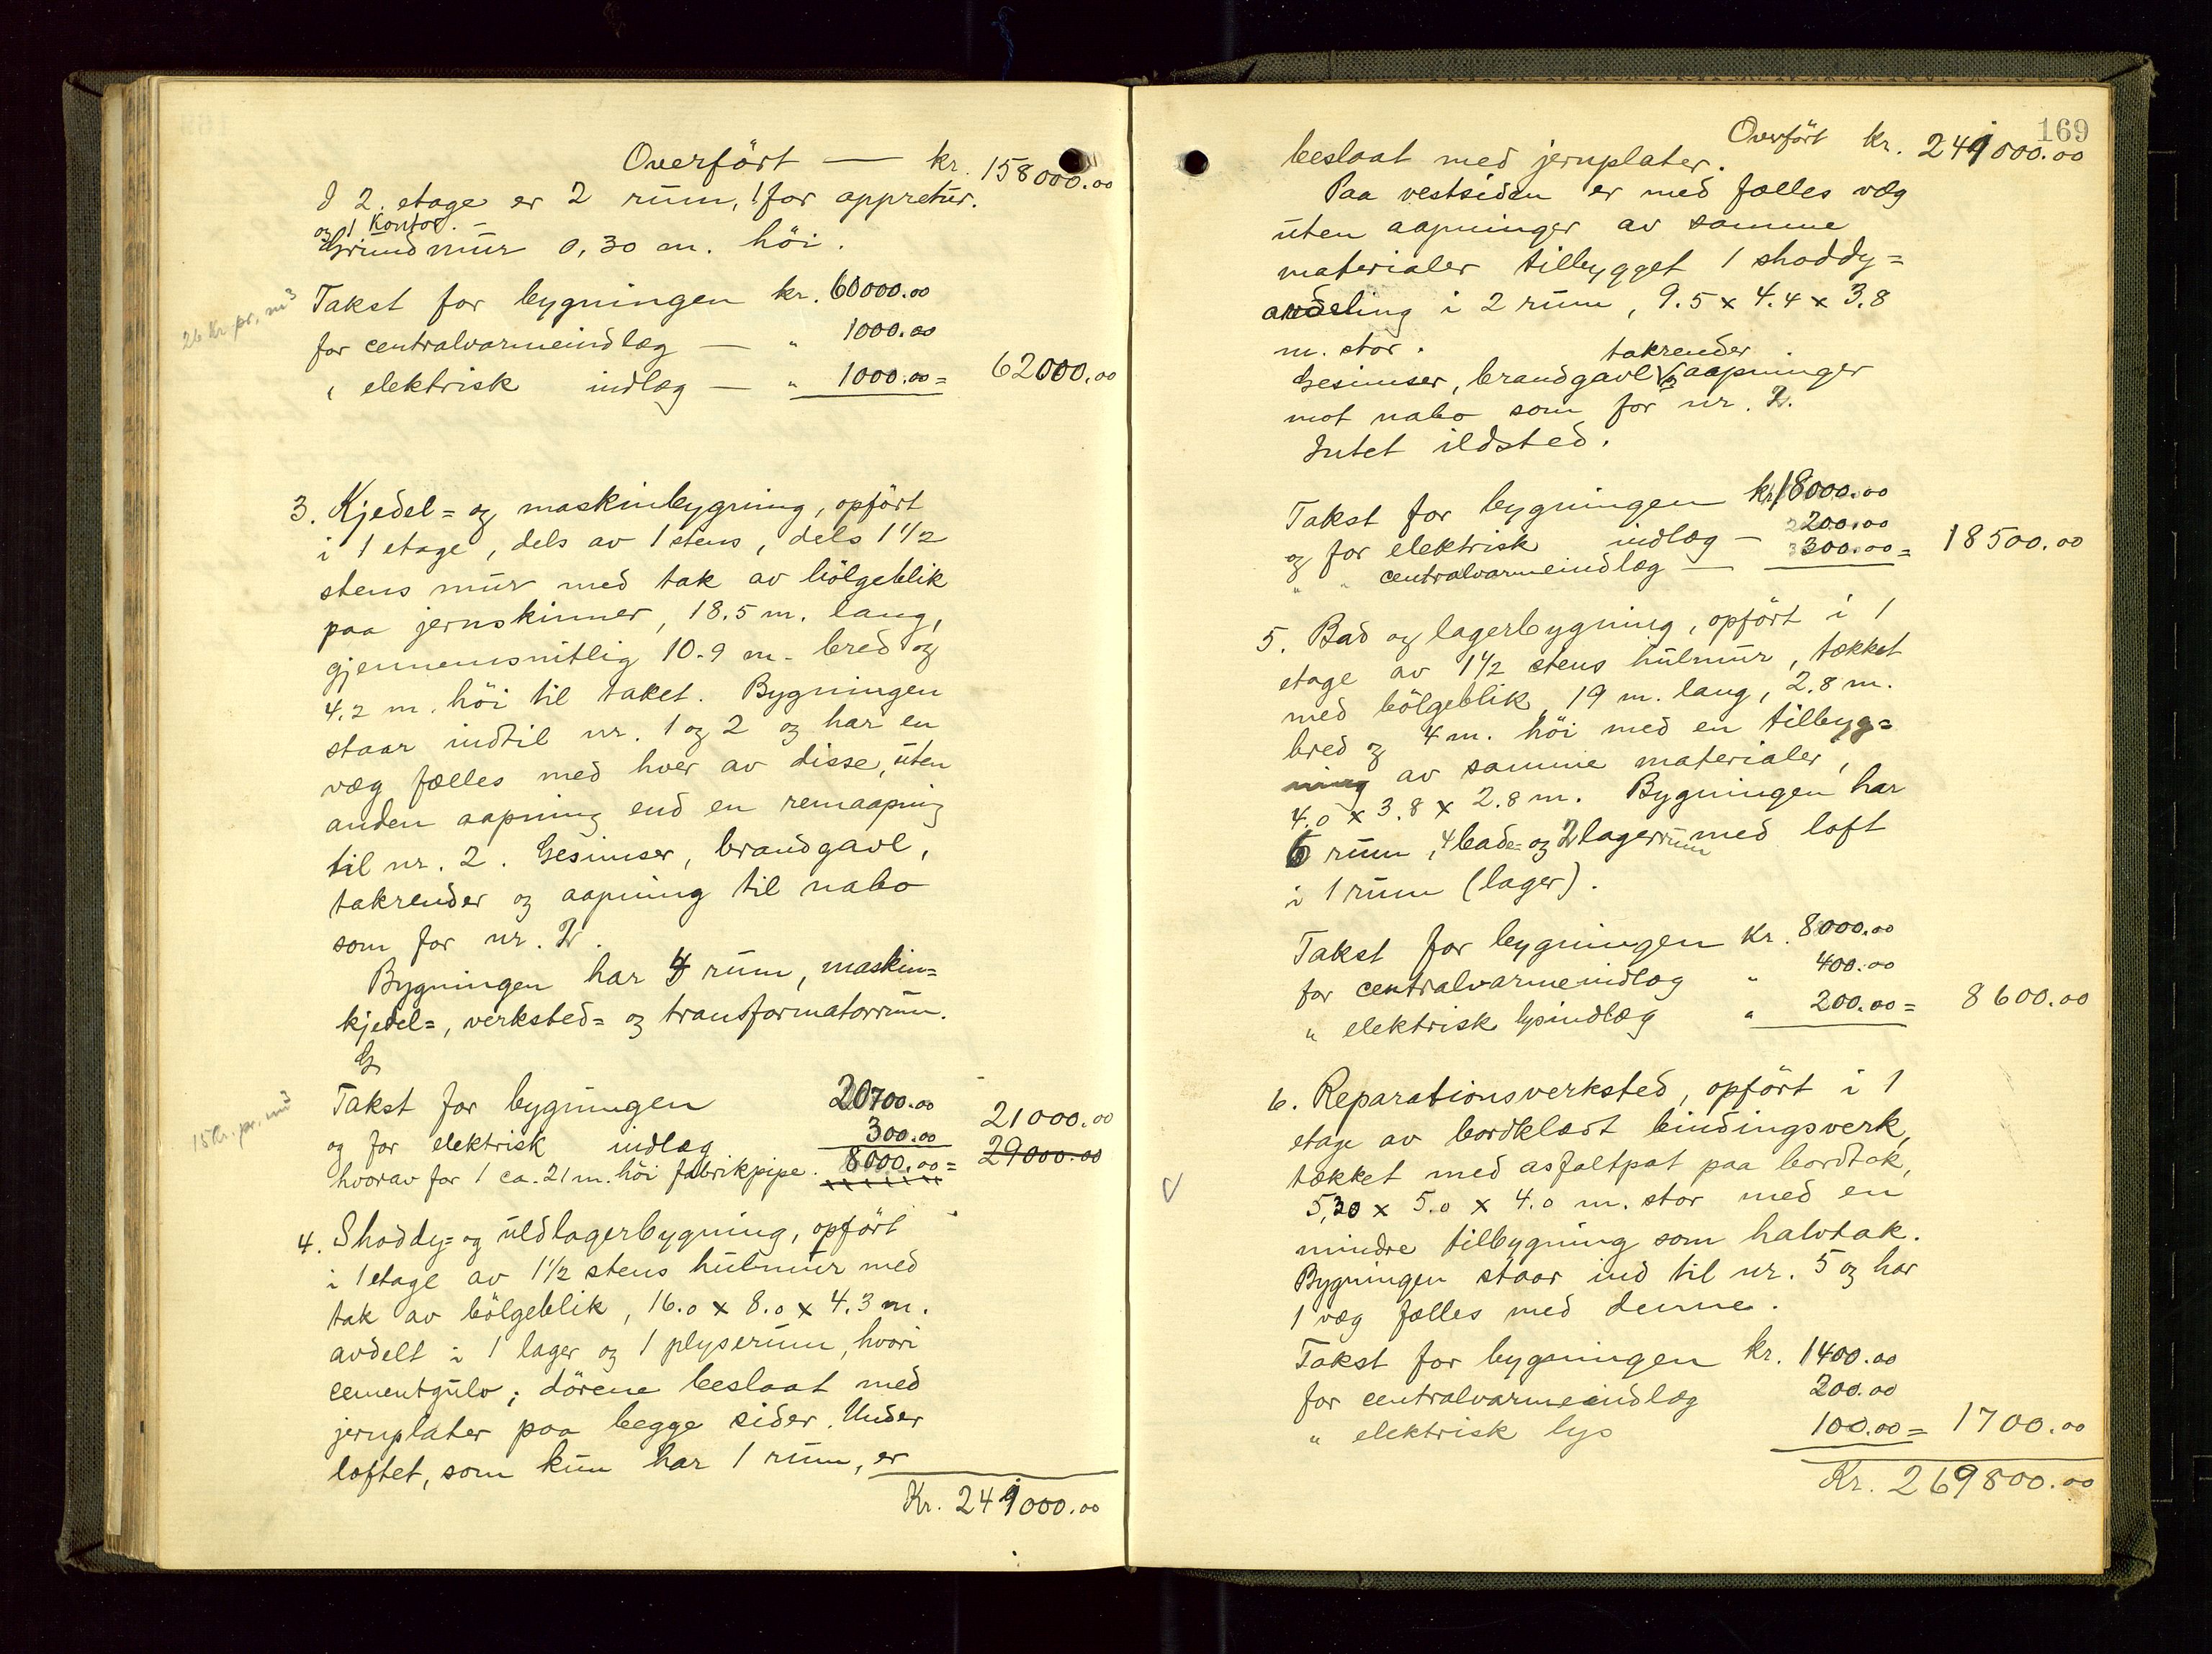 Overfört — kr. 158000.00
I 2. etage er 2 rüm, 1 for appretür.
og 1 Kontor. –
Gründmür 0,30 m. höi.
26 Kr. pr. m³
Takst for bygningen kr. 60000.00
for centralvarmeindlæg — " 1000.00
" elektrisk indlæg — " 1000.00 = 62000.00
3. Kjedel= og maskinbygning, opfört
i 1 etage, dels av 1 stens, dels 1 1/2
stens mür med tak av bölgeblik
paa jernskinner, 18.5 m. lang,
gjennemsnitlig 10.9 m. bred og
4.2 m. höi til taket. Bygningen
staar indtil nr. 1 og 2 og har en
væg fælles med hver av disse, üten
anden aapning end en remaapning
til nr. 2. Gesimser, brandgavl,
takrender og aapning til nabo
som for nr. 2.
Bygningen har 4 rüm, maskin=
kjedel=, verksted= og transformatorrüm.
G
15 Kr. pr. m³
Takst for bygningen 20700.00
og for elektrisk indlæg 300.00 21000.00
hvorav for 1 ca. 21 m. höi fabrikpipe. 8000.00 = 29000.00
4. Shoddy= og üldlagerbygning, opfört
i 1 etage av 1 1/2 stens hülmür med
tak av bölgeblik, 16.0 x 8.0 x 4.3 m.
avdelt i 1 lager og 1 plyserüm, hvori
cementgülv; dörene beslaat med
jernplater paa begge sider. Under
loftet, som kün har 1 rüm, er
Kr. 241000.00
169
Overfört kr. 241000.00
beslaat med jernplater.
Paa vestsiden er med fælles væg
üten aapninger av samme
materialer tilbygget 1 shoddy=
avdeling i 2 rüm, 9.5 x 4.4 x 3.8
m. stor.
takrender
Gesimser, brandgavl og aapninger
mot nabo som for nr. 2.
Intet ildsted.
Takst for bygningen kr. 18000.00
og for elektrisk indlæg — 200.00
" " centralvarmeindlæg — 300.00 = 18500.00
5. Bad og lagerbygning, opfört i 1
etage av 1 1/2 stens hülmür, tækket
med bölgeblik, 19 m. lang, 2.8 m.
bred og 4 m. höi med en tilbyg=
ning av samme materialer,
4.0 x 3.8 x 2.8 m. Bygningen har
6 rüm, 4 bade= og 2 lagerrüm med loft
i 1 rüm (lager).
Takst for bygningen Kr. 8000.00
for centralvarmeindlæg " 400.00
" elektrisk lysindlæg " 200.00 = 8600.00
6. Reparationsverksted, opfört i 1
etage av bordklædt bindingsverk,
tækket med asfaltpat paa bordtak,
5,30 x 5.0 x 4.0 m. stor med en
mindre tilbygning som halvtak.
Bygningen staar ind til nr. 5 og har
1 væg fælles med denne.
Takst for bygningen kr. 1400.00
for centralvarmeindlæg 200.00
" elektrisk lys 100.00 = 1700.00
Kr. 269800.00